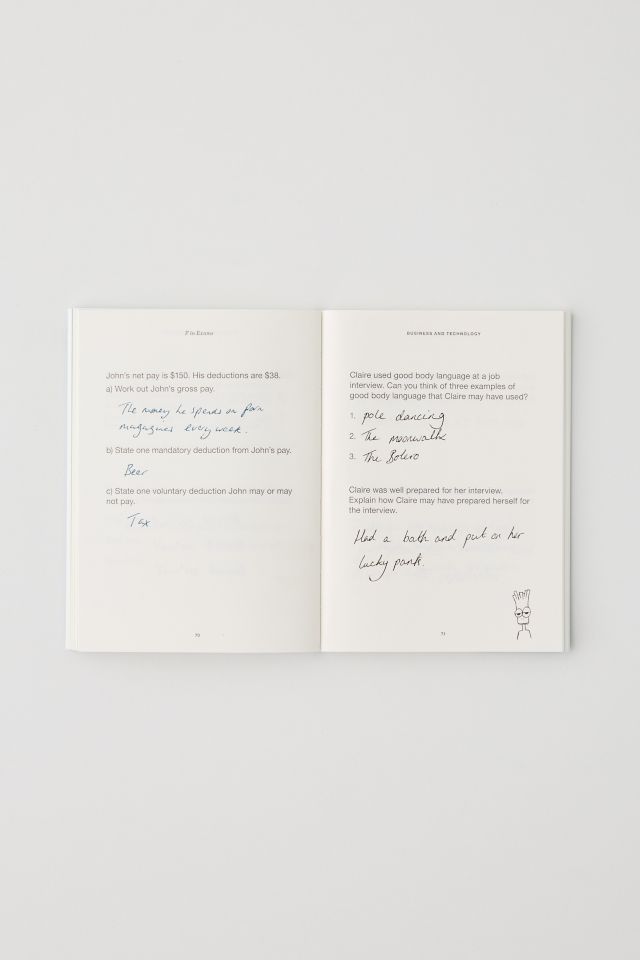 F in Exams
John's net pay is $150. His deductions are $38.
a) Work out John's gross pay.
The money he spends on porn
magazines every week.
b) State one mandatory deduction from John's pay.
Beer
c) State one voluntary deduction John may or may
not pay.
Tax
70
BUSINESS AND TECHNOLOGY
Claire used good body language at a job
interview. Can you think of three examples of
good body language that Claire may have used?
1. pole dancing
2. The moonwalk
3. The Bolero
Claire was well prepared for her interview.
Explain how Claire may have prepared herself for
the interview.
Had a bath and put on her
lucky pants.
71